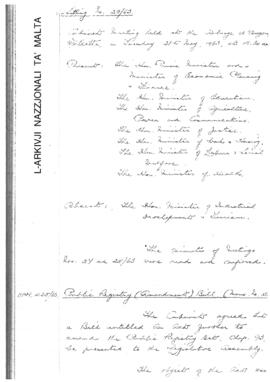 L-ARKIVJI NAZZJONALI TA' MALTA
Meeting No. 29/63
Cabinet Meeting held at the Auberge d'Aragon,
Valletta on Tuesday 21st May 1963, at
Present: The Hon. Prime Minister and
Minister of Economic Planning
& Finance
The Hon. Minister of Education.
The Hon. Minister of Agriculture,
Power and Communications.
The Hon. Minister of Justice.
The Hon. Minister of Works & Housing.
The Hon. Minister of Labour & Social
Welfare
The Hon. Minister of Health.
Absent: The Hon. Minister of Industrial
Development & Tourism.
The minutes of Meetings
Nos. 27 and 28/63 were read and confirmed.
Public Registry (Amendment) Bill (Memo No.
The Cabinet agreed that
a Bill entitled An Act further to
amend the Public Registry Act, Chap. 93,
be presented to the Legislative Assembly.
The object of the Act was